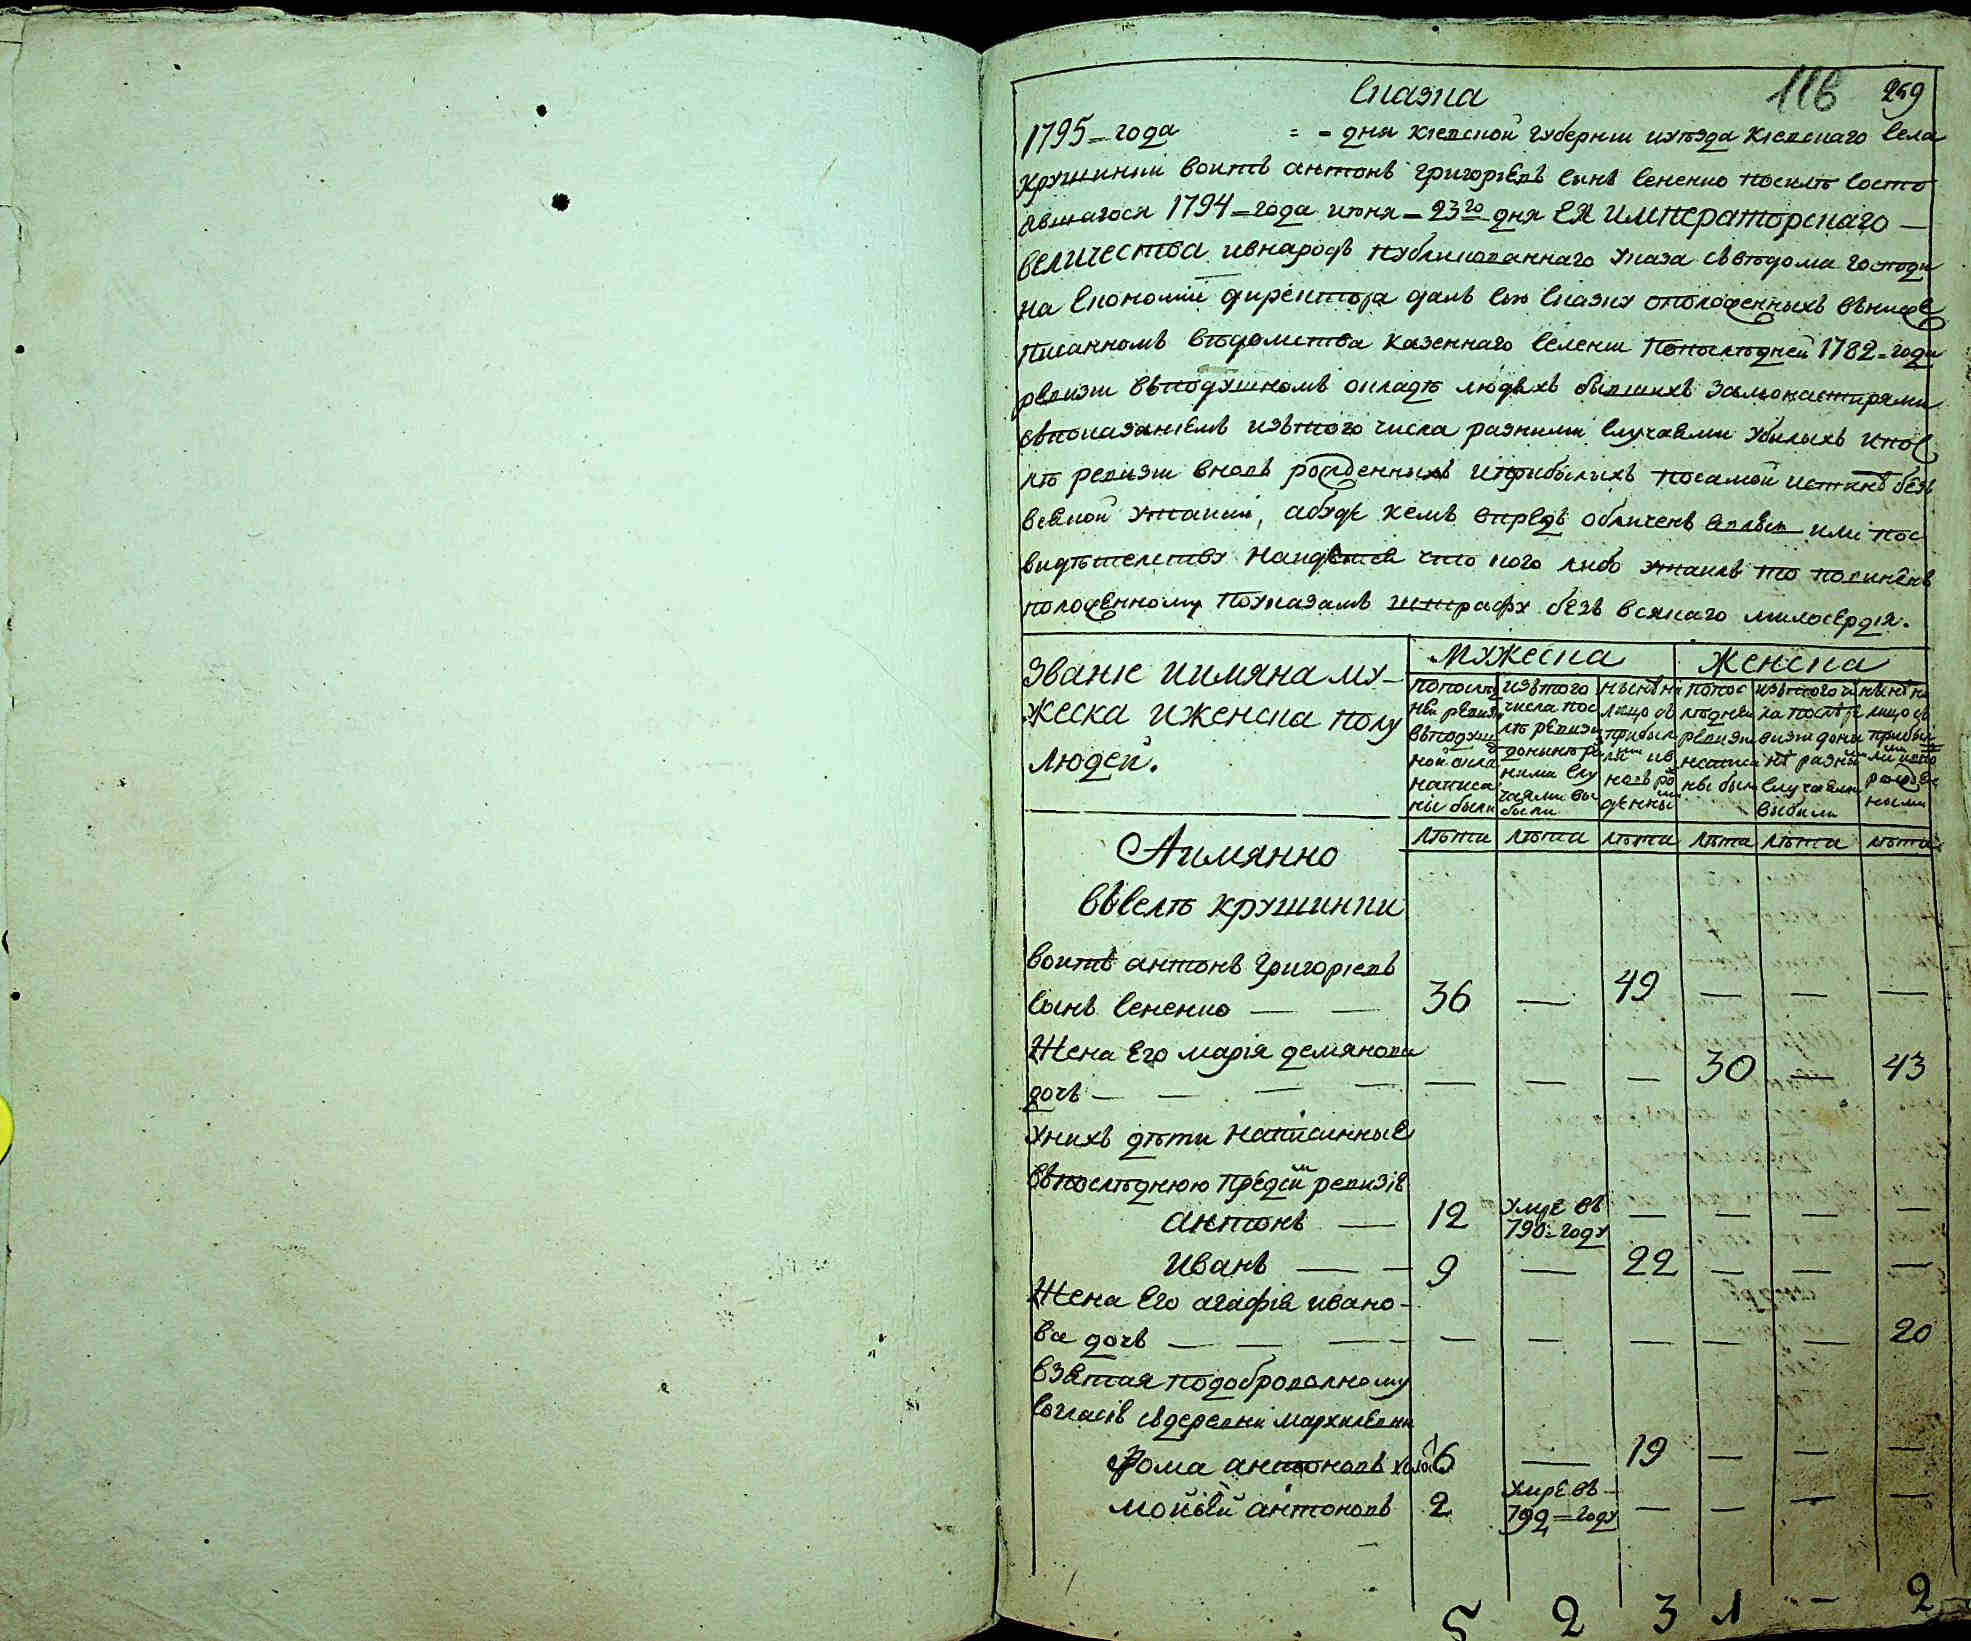 Сказка 118 259
1795 = года = = дня киевской губернии и уѣзда киевскаго села
крушинки воитъ антонъ григориевъ сынъ сененко посилѣ состо
явшагося 1794 = года июня = 23го дня ЕЯ императорскаго —
величества ивнародъ публикованнаго указа съвѣдома господи
на економии директора далъ сию сказку ополоденныхъ вънижε
писанномъ вѣдомства казеннаго селении попослѣдней 1782 = года
ревизии въподушномъ окладѣ людѣхъ бывшихъ замонастирями
споказаниемъ изътого числа разними случаями убылыхъ ипос
лѣ ревизии вновь рожденныхъ иприбылыхъ посамой истинѣ безъ
всякой утайки, абуде кемъ впредь обличенъ или пос
видѣтелству найдется что кого либо утаилъ то повиненъ
положенному поуказамъ штрафу безъ всякаго милосердия.
Звание иимяна му-
жеска иженска полу
людей.
Мужеска Женска
попослѣдней ревизии въподушной окладъ написаны были
изътого числа послѣ ревизии донынѣ разними случаями выбыли
нынѣ налицо съ прибылыми ивновь рожденными
попослѣдней ревизии написаны были
изътого числа послѣ ревизии донынѣ разными случаями выбыли
нынѣ налицо съ прибылыми ивновь рожденными
лѣта лѣта лѣта лѣта лѣта лѣта
Аимянно
въселѣ крушинки
воитъ антонъ григориевъ
сынъ сененко — — 36 — 49 — — —
Жена его мария демянова
дочь — — — — — — — 30 — 43
унихъ дѣти написанные
въпослѣднюю предсимъ ревизию
антонъ — 12 умре въ 790 = году — — — —
иванъ — — 9 — 22 — — —
Жена его агафия ивано-
ва дочь — — — — — — — — — 20
взятая подоброволному
согласию сьдеревни мархилевки
Фома антоновъ холос 6 — 19 — — —
мойсѣй антоновъ 2 умре въ — 792 = году — — — —
5 2 3 1 — 2